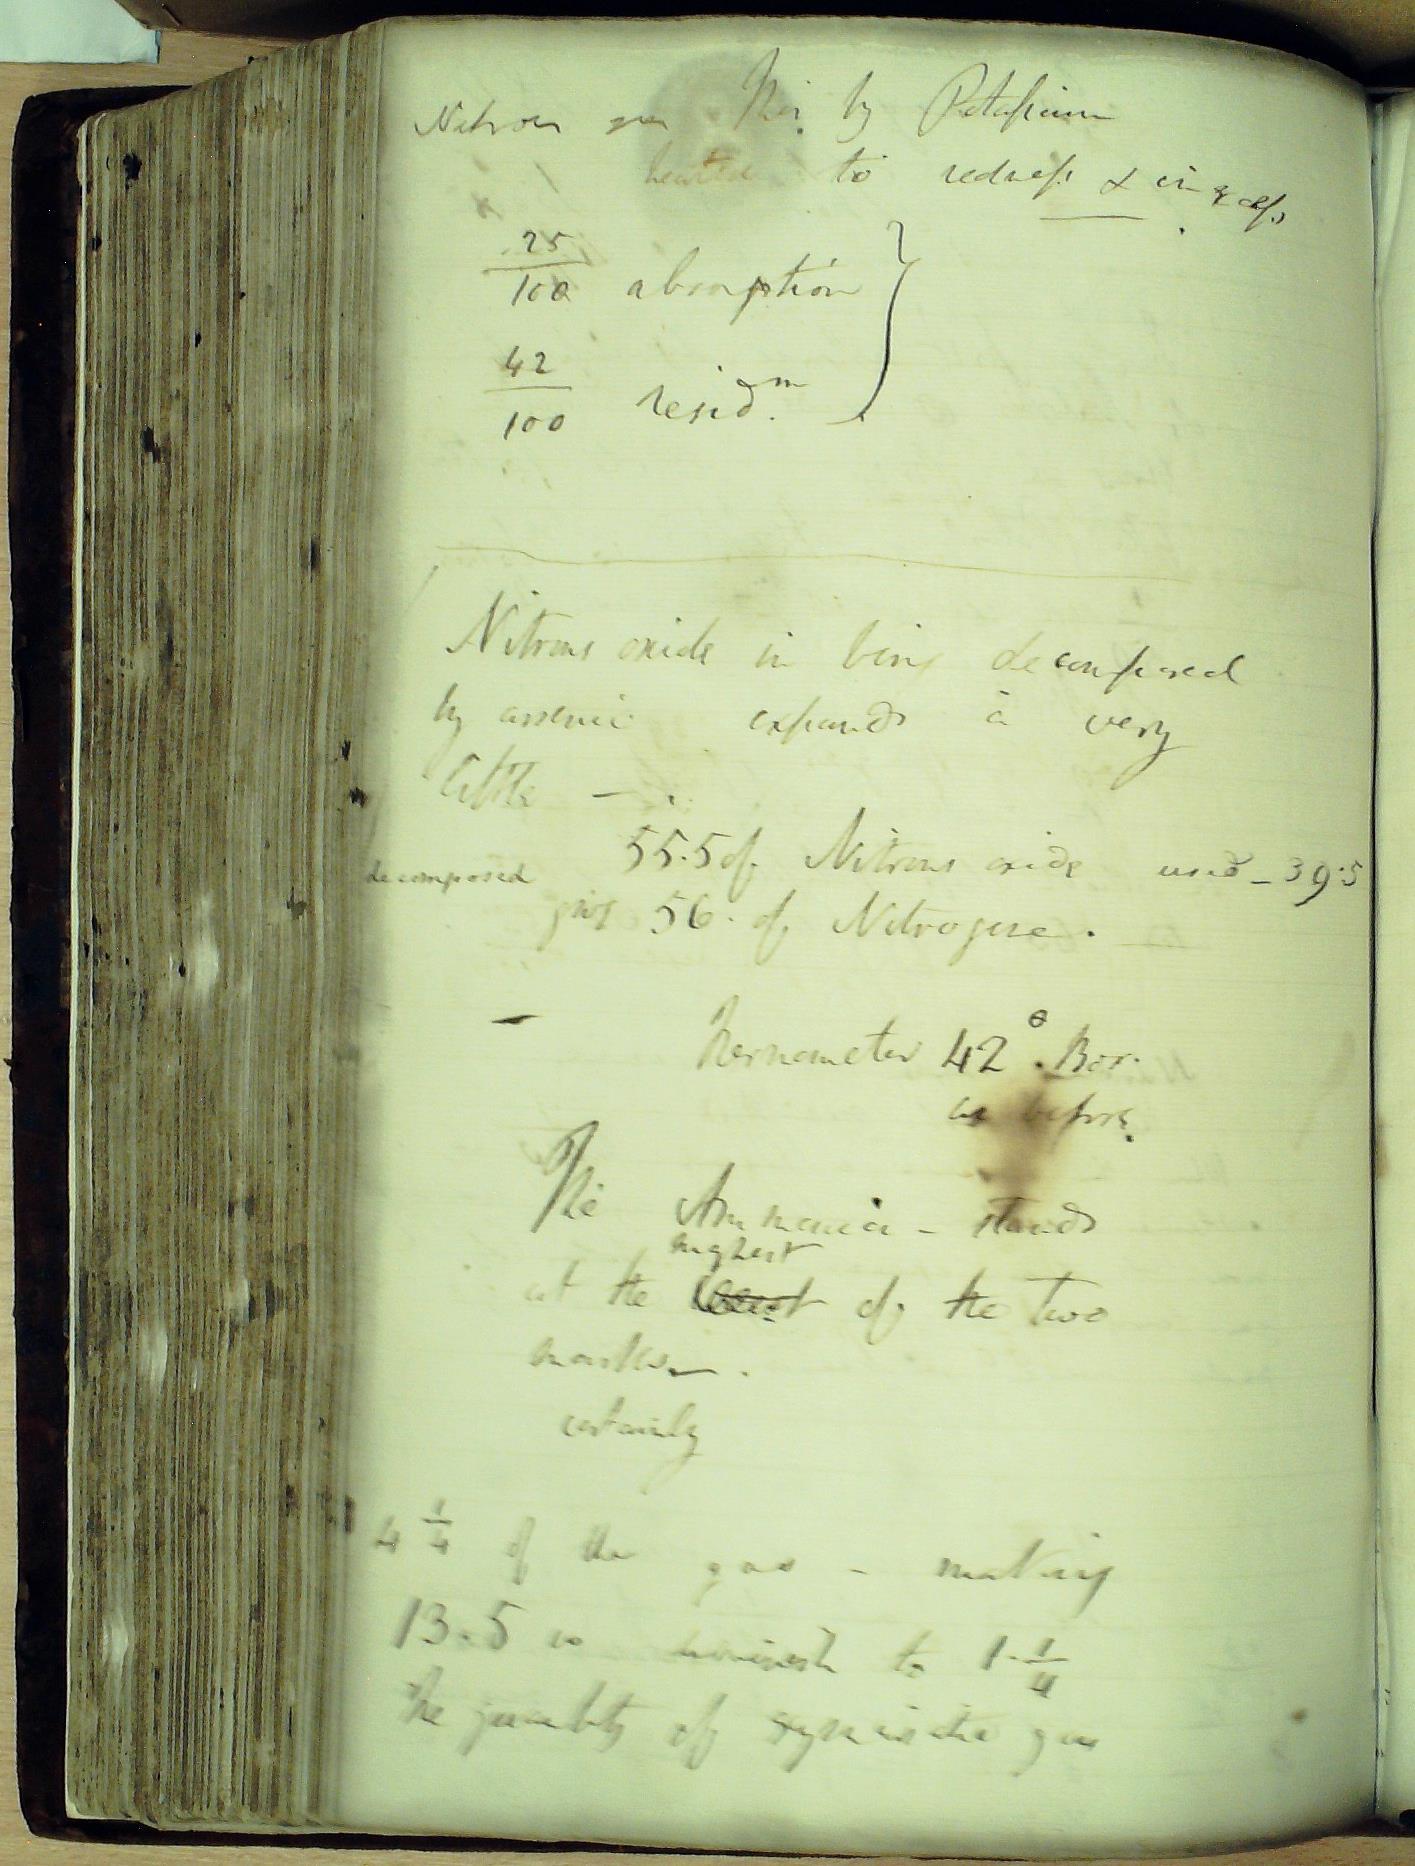 Nitrous gas by Potassium
heated to redness & in excess
25/100 absorption
42/100 resid.m
Nitrous oxide in being decomposed
by arsenic expands a very
little —
55.5 of Nitrous oxide used – 39.5
decomposed
give 56. of Nitrogene.
Thermometer 42°. Bar.
as before.
The Ammonia – stands
highest
at the least of the two
marks.
certainly
4 1/4 of the gas – making
13.5 is diminish to 1.1/4
the quantity of gas